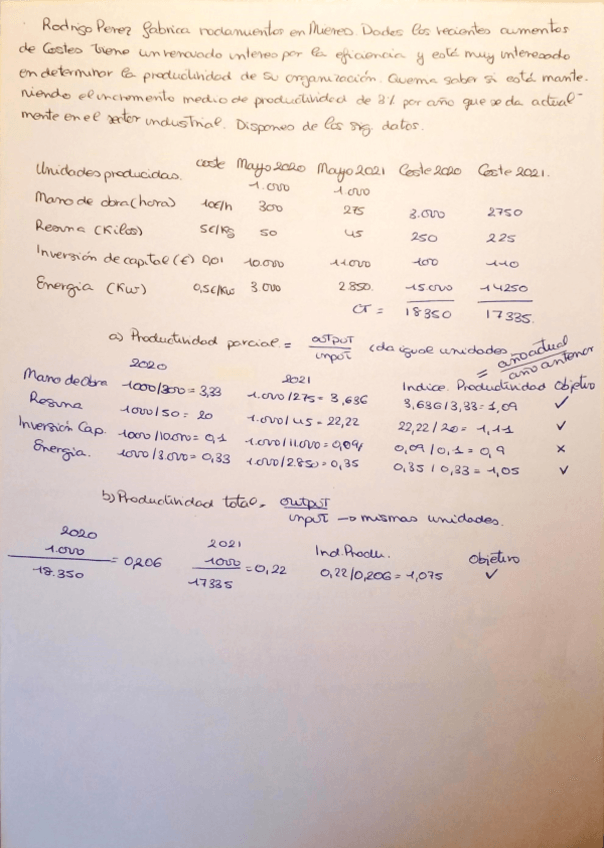 Rodrigo Perez fabrica rodamientos en Mieres. Dados los recientes aumentos
de Costes tiene un renovado interes por la eficiencia y está muy interesado
en determinar la productividad de su organización. Querría saber si está mante-
niendo el incremento medio de productividad de 3% por año que se da actual-
mente en el sector industrial. Dispones de los sig. datos.
coste Mayo 2020 Mayo 2021 Coste 2020 Coste 2021.
Unidades producidas. 1.000 1.000
Mano de obra (hora) 10€/h 300 275 3.000 2750
Resina (Kilos) 5€/Kg 50 45 250 225
Inversión de capital (€) 0,01 10.000 11.000 100 110
Energia (Kw) 0,5€/Kw 3.000 2.850. 15.000 14250
CT = 18350 17335.
a) Productividad parcial = output/input (da igual unidades) = año actual/año anterior
2020 2021 Indice. Productividad Objetivo
Mano de Obra 1000/300 = 3,33 1.000/275 = 3,636 3,636/3,33 = 1,09 ✓
Resina 1000/50 = 20 1.000/45 = 22,22 22,22/20 = 1,11 ✓
Inversión Cap. 1000/10.000 = 0,1 1.000/11.000 = 0,091 0,09/0,1 = 0,9 x
Energia. 1000/3.000 = 0,33 1.000/2.850 = 0,35 0,35/0,33 = 1,05 ✓
b) Productividad total = output/input → mismas unidades.
2020 2021 Ind. Produ. Objetivo
1.000/18.350 = 0,206 1000/17335 = 0,22 0,22/0,206 = 1,075 ✓